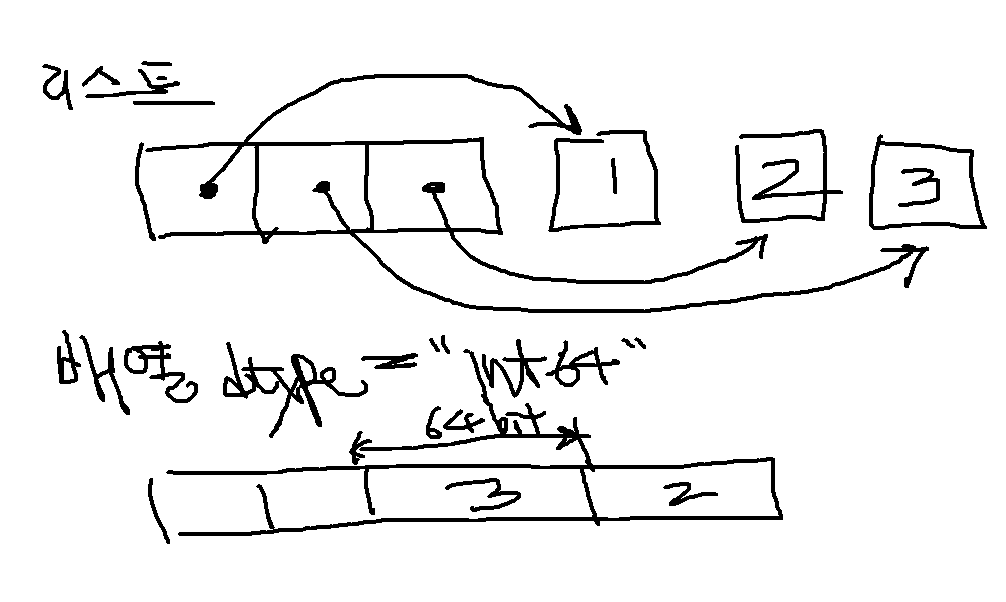 리스트
1 2 3
배열 dtype = "int64"
64 bit
3 2